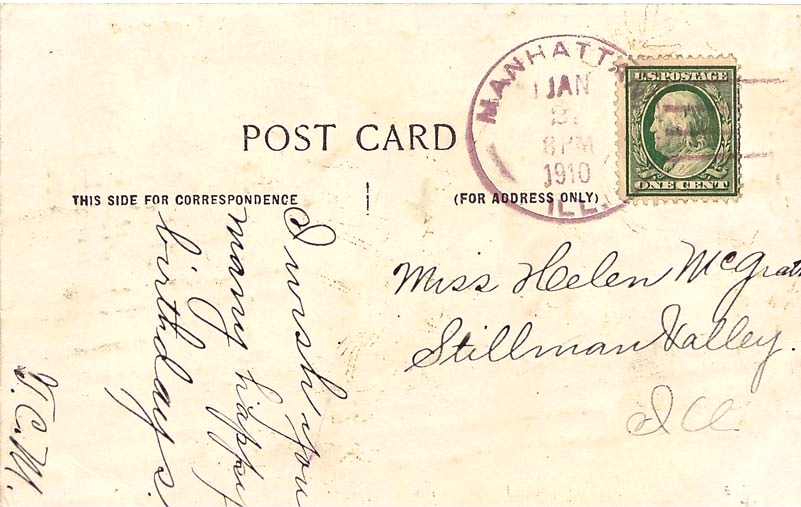 MANHATTAN
JAN
2
8 PM
1910
ILL.
U.S. POSTAGE
ONE CENT
POST CARD
THIS SIDE FOR CORRESPONDENCE
(FOR ADDRESS ONLY)
I wish you
many happy
birthdays.
Miss Helen McGrath
Stillman Valley.
Ill